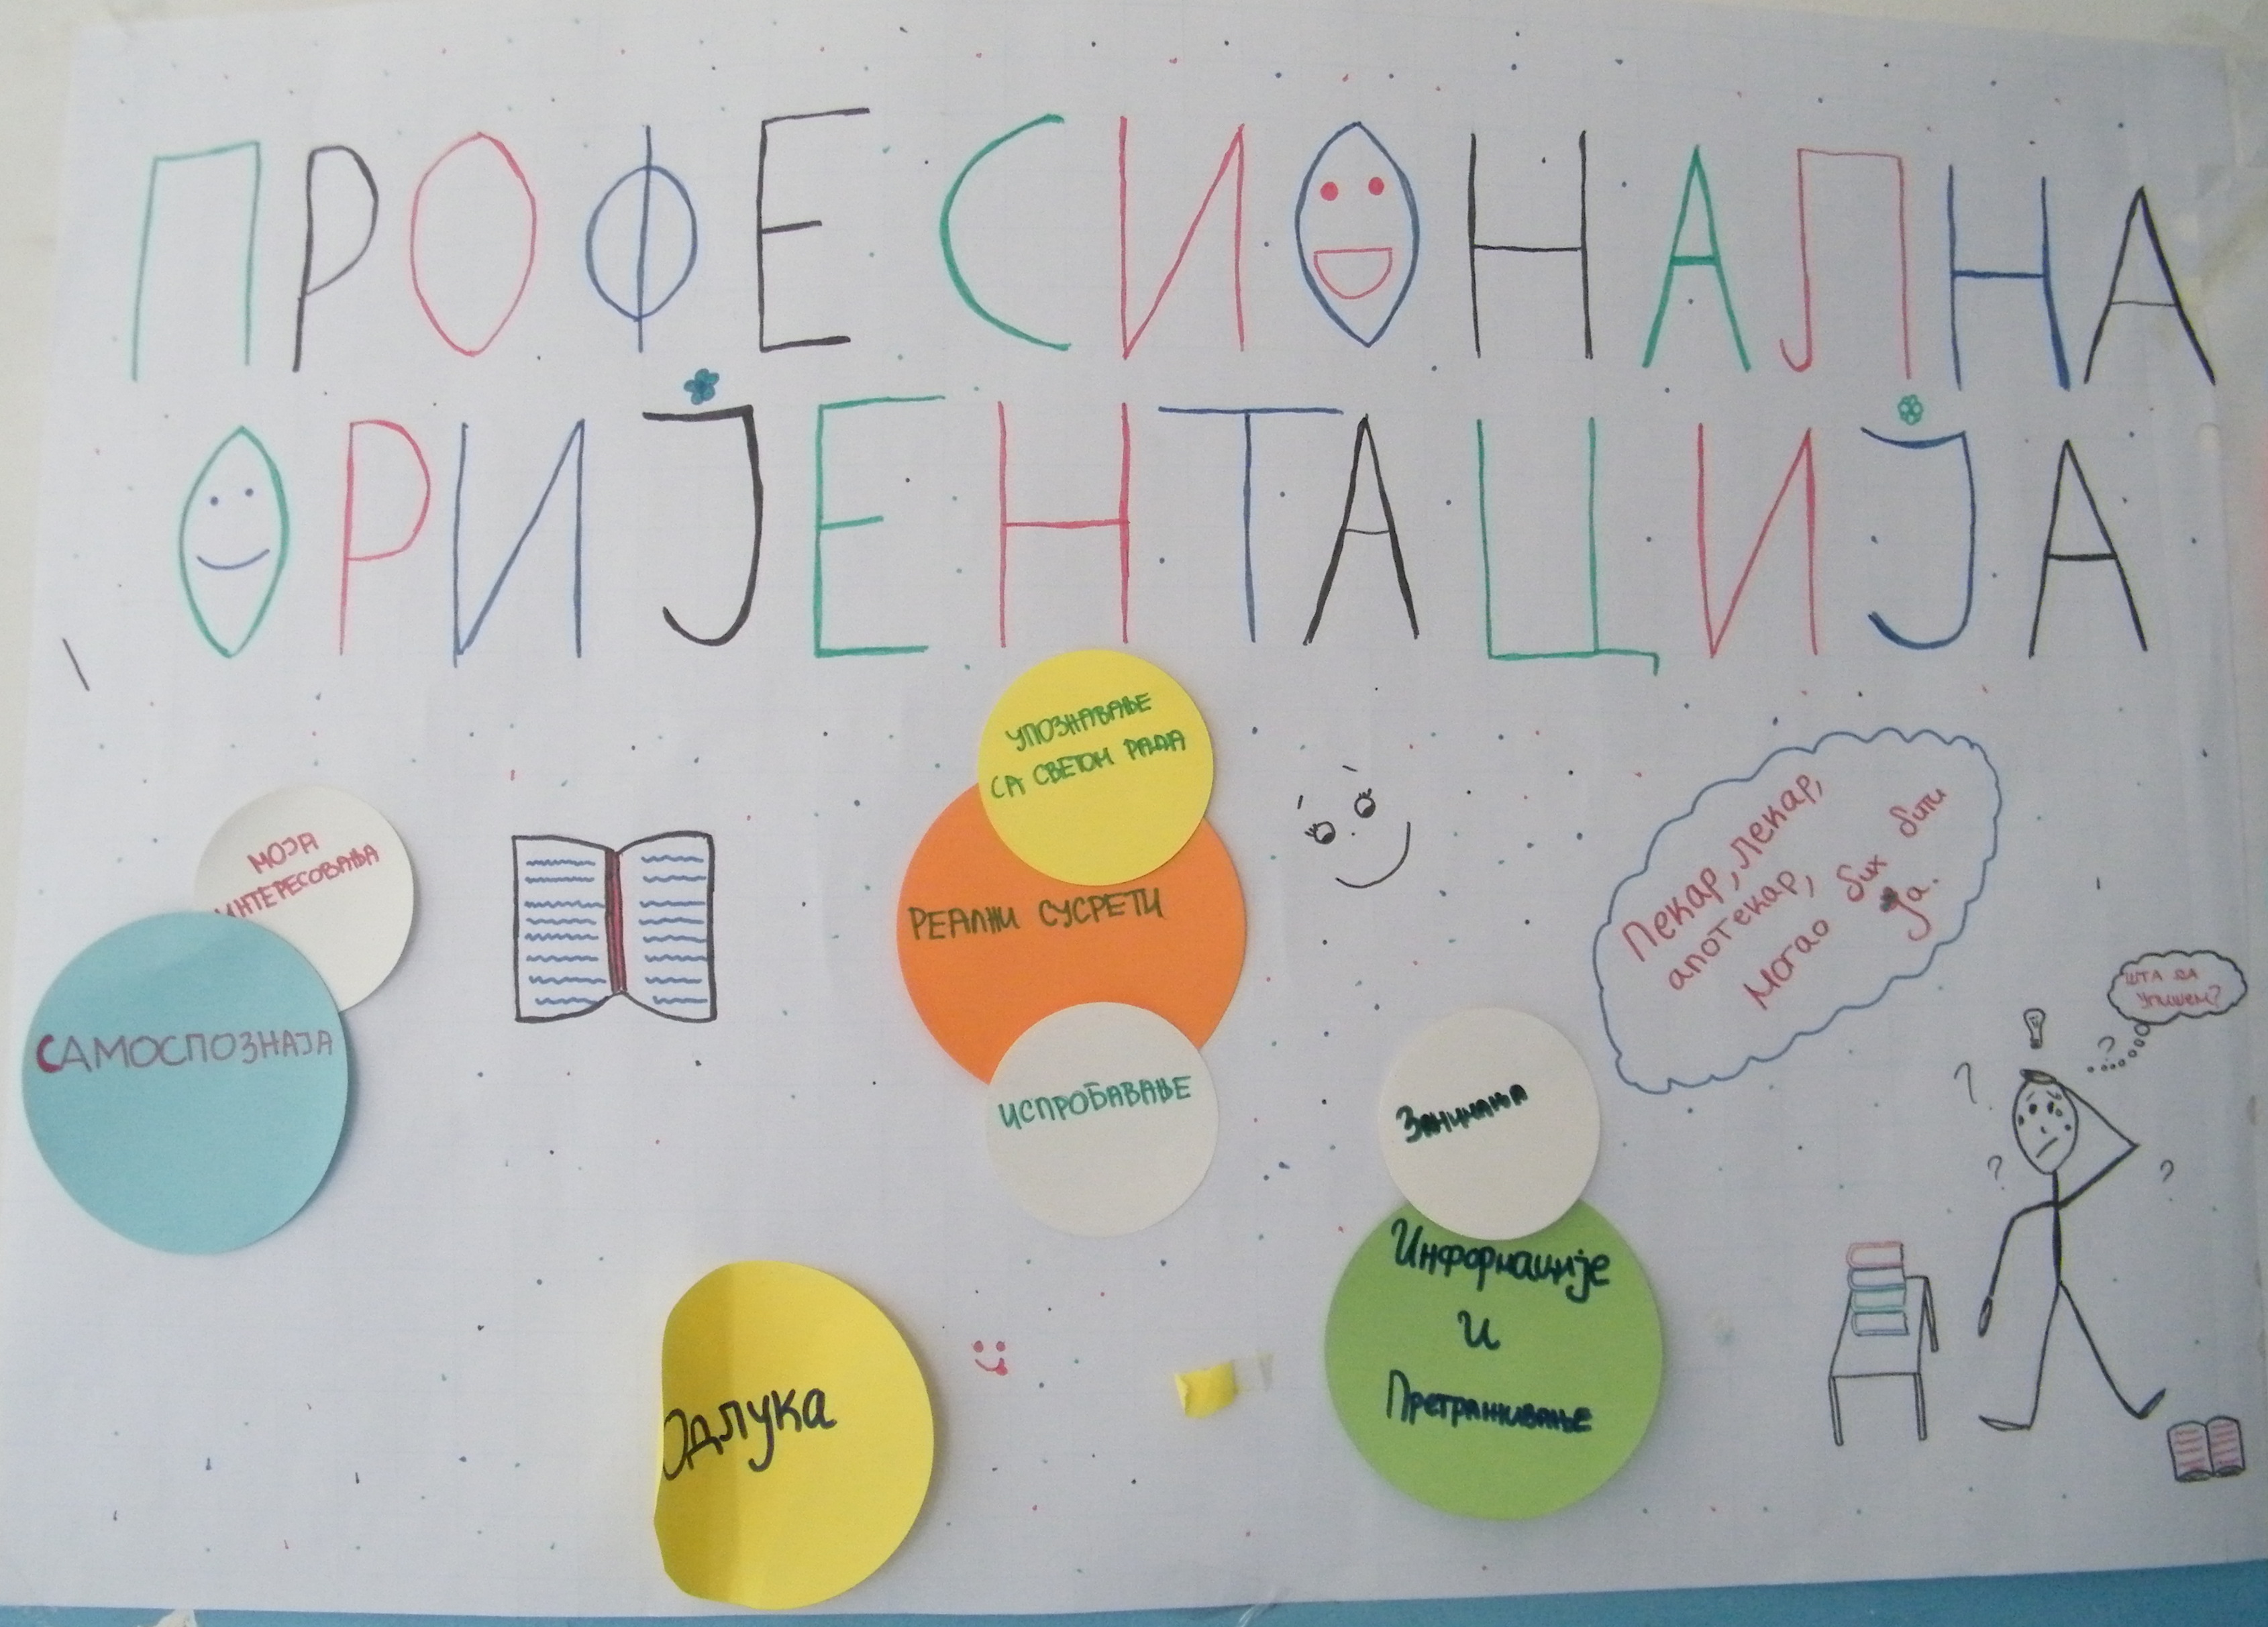 ПРОФЕСИОНАЛНА
ОРИЈЕНТАЦИЈА
УПОЗНАВАЊЕ
СА СВЕТОМ РАДА
РЕАЛНИ СУСРЕТИ
ИСПРОБАВАЊЕ
МОЈА
ИНТЕРЕСОВАЊА
САМОСПОЗНАЈА
Пекар, лекар,
апотекар,
Могао бих бити
ја.
ШТА ДА
УПИШЕМ?
?
?
?
?
Занимања
Информације
и
Претраживање
Одлука